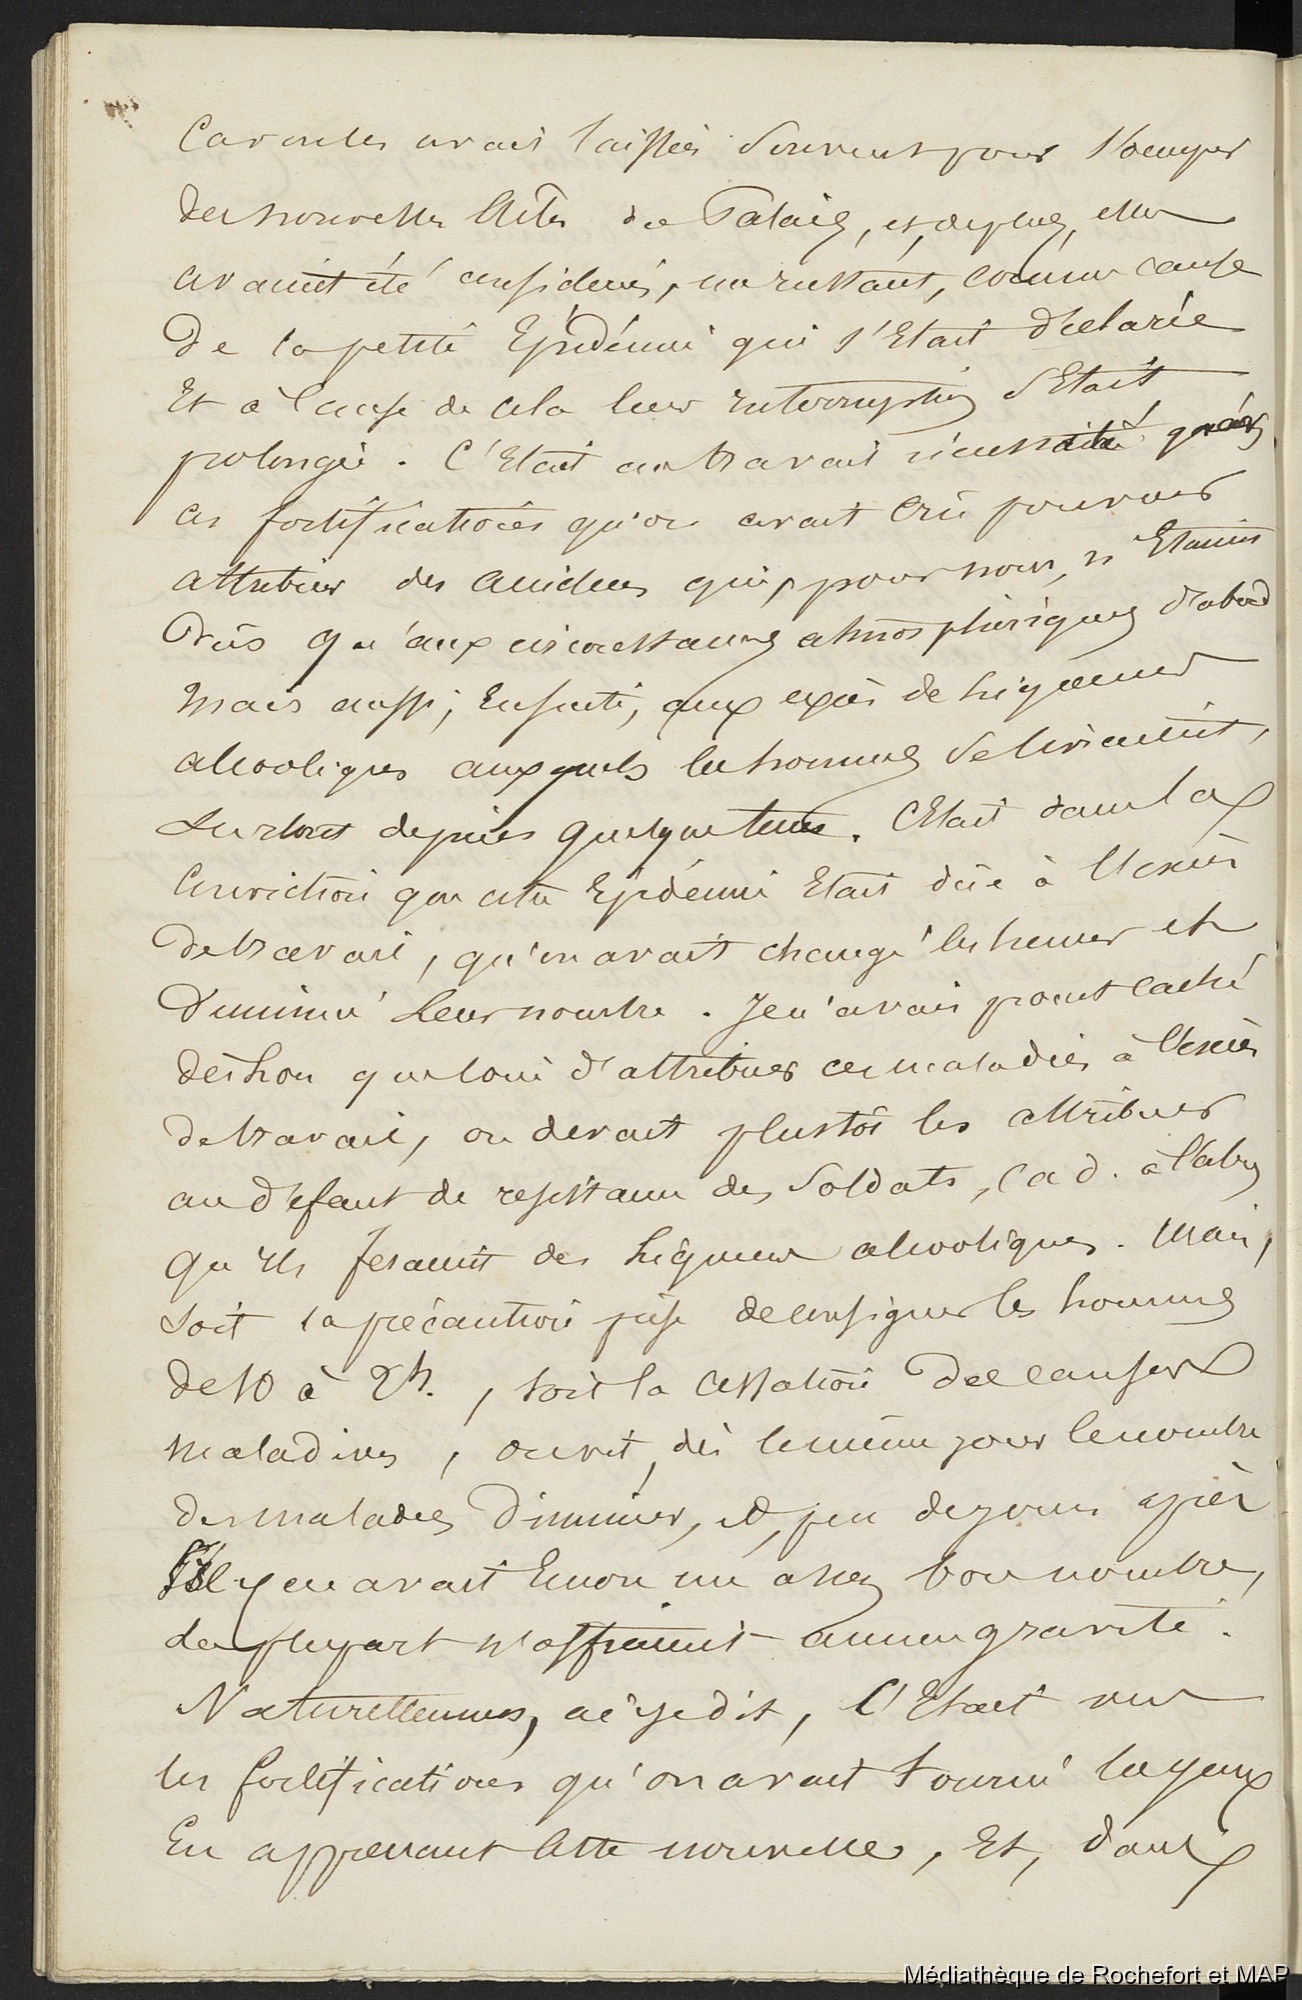 avait laissées souvent pour s'occuper
des nouvelles de Palais, et, de plus, elles
avaient été considerés, un instant, comme cause
De la petite Epidémie qui s'Etait déclarée
Et à cause de cela leur interruption s'Etait
prolongée. C'Etait au travail nécessité par
ces fortifications qu'on avait cru pouvoir
attribuer des accidens qui, pour nous, n'Etaient
dûs qu'aux circonstances atmosphériques d'abord
Mais aussi, Ensuite, aux excès de liqueurs
alcooliques auxquels les hommes se livraient,
surtout depuis quelque tems. C'Etait dans la
Conviction que cette Epidémie Etait dûe à l'excès
de travail, qu'on avait changé les heures et
Diminué leur nombre. Je n'avais point caché
dès lors que loin d'attribuer ces maladies à l'excès
de travail, on devait plustôt les attribuer
au défaut de resistance des Soldats, c a d. à l'abus
qu'ils fesaient des liqueurs alcooliques. Mais,
soit la précaution prise de consigner les hommes
de 10 à 2h., soit la cessation des causes
maladives, on vit, dès le même jour le nombre
des malades Diminuer, et, peu de jours après
S'Il y en avait Encore un assez bon nombre,
la plupart n'offraient aucune gravité.
Naturellement, ai-je dit, C'Etait vers
les fortifications qu'on avait tourné les yeux
En apprenant cette nouvelle, Et, dans
Médiathèque de Rochefort et MAP